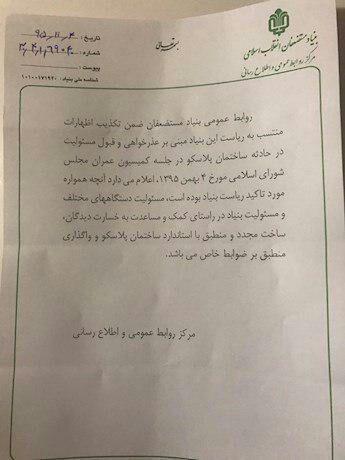 بنیاد مستضعفان انقلاب اسلامی
مرکز روابط عمومی و اطلاع رسانی
بسمه تعالی
تاریخ: ۹۵،۱۱،۴
شماره:
پیوست:
شناسه ملی بنیاد: ۱۰۱۰۰۱۷۱۹۲۰
روابط عمومی بنیاد مستضعفان ضمن تکذیب اظهارات
منتسب به ریاست این بنیاد مبنی بر عذرخواهی و قبول مسئولیت
در حادثه ساختمان پلاسکو در جلسه کمیسیون عمران مجلس
شورای اسلامی مورخ ۴ بهمن ۱۳۹۵، اعلام می دارد آنچه همواره
مورد تاکید ریاست بنیاد بوده است، مسئولیت دستگاههای مختلف
و مسئولیت بنیاد در راستای کمک و مساعدت به خسارت دیدگان،
ساخت مجدد و منطبق با استاندارد ساختمان پلاسکو و واگذاری
منطبق بر ضوابط خاص می باشد.
مرکز روابط عمومی و اطلاع رسانی